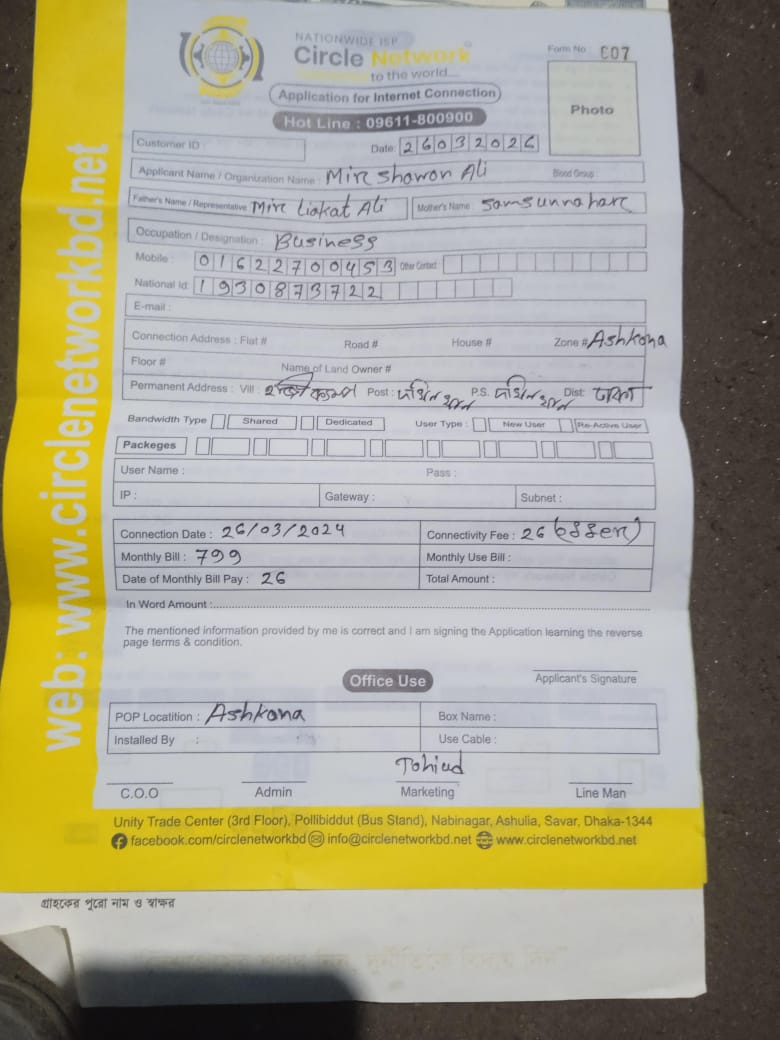 NATIONWIDE ISP
Circle Network
to the world...
Form No : 607
Application for Internet Connection
Hot Line : 09611-800900
Photo
Customer ID :
Date: 26032026
Applicant Name / Organization Name : Mir Shawon Ali Blood Group :
Father's Name / Representative: Mir Liakat Ali Mother's Name : Samsunnahar
Occupation / Designation : Business
Mobile : 01622700453 Other Contact :
National Id: 1930873722
E-mail :
Connection Address : Flat # Road # House # Zone # Ashkona
Floor # Name of Land Owner #
Permanent Address : Vill : হাজী ক্যাম্প Post : দক্ষিনখান P.S. দক্ষিনখান Dist: ঢাকা
Bandwidth Type Shared Dedicated User Type : New User Re-Active User
Packeges
User Name : Pass :
IP : Gateway : Subnet :
Connection Date : 26/03/2024 Connectivity Fee : 26
Monthly Bill : 799 Monthly Use Bill :
Date of Monthly Bill Pay : 26 Total Amount :
In Word Amount :
The mentioned information provided by me is correct and I am signing the Application learning the reverse
page terms & condition.
Applicant's Signature
Office Use
POP Locatition : Ashkona Box Name :
Installed By : Use Cable :
Tohid
C.O.O Admin Marketing Line Man
Unity Trade Center (3rd Floor), Pollibiddut (Bus Stand), Nabinagar, Ashulia, Savar, Dhaka-1344
facebook.com/circlenetworkbd info@circlenetworkbd.net www.circlenetworkbd.net
web: www.circlenetworkbd.net
গ্রাহকের পুরো নাম ও স্বাক্ষর